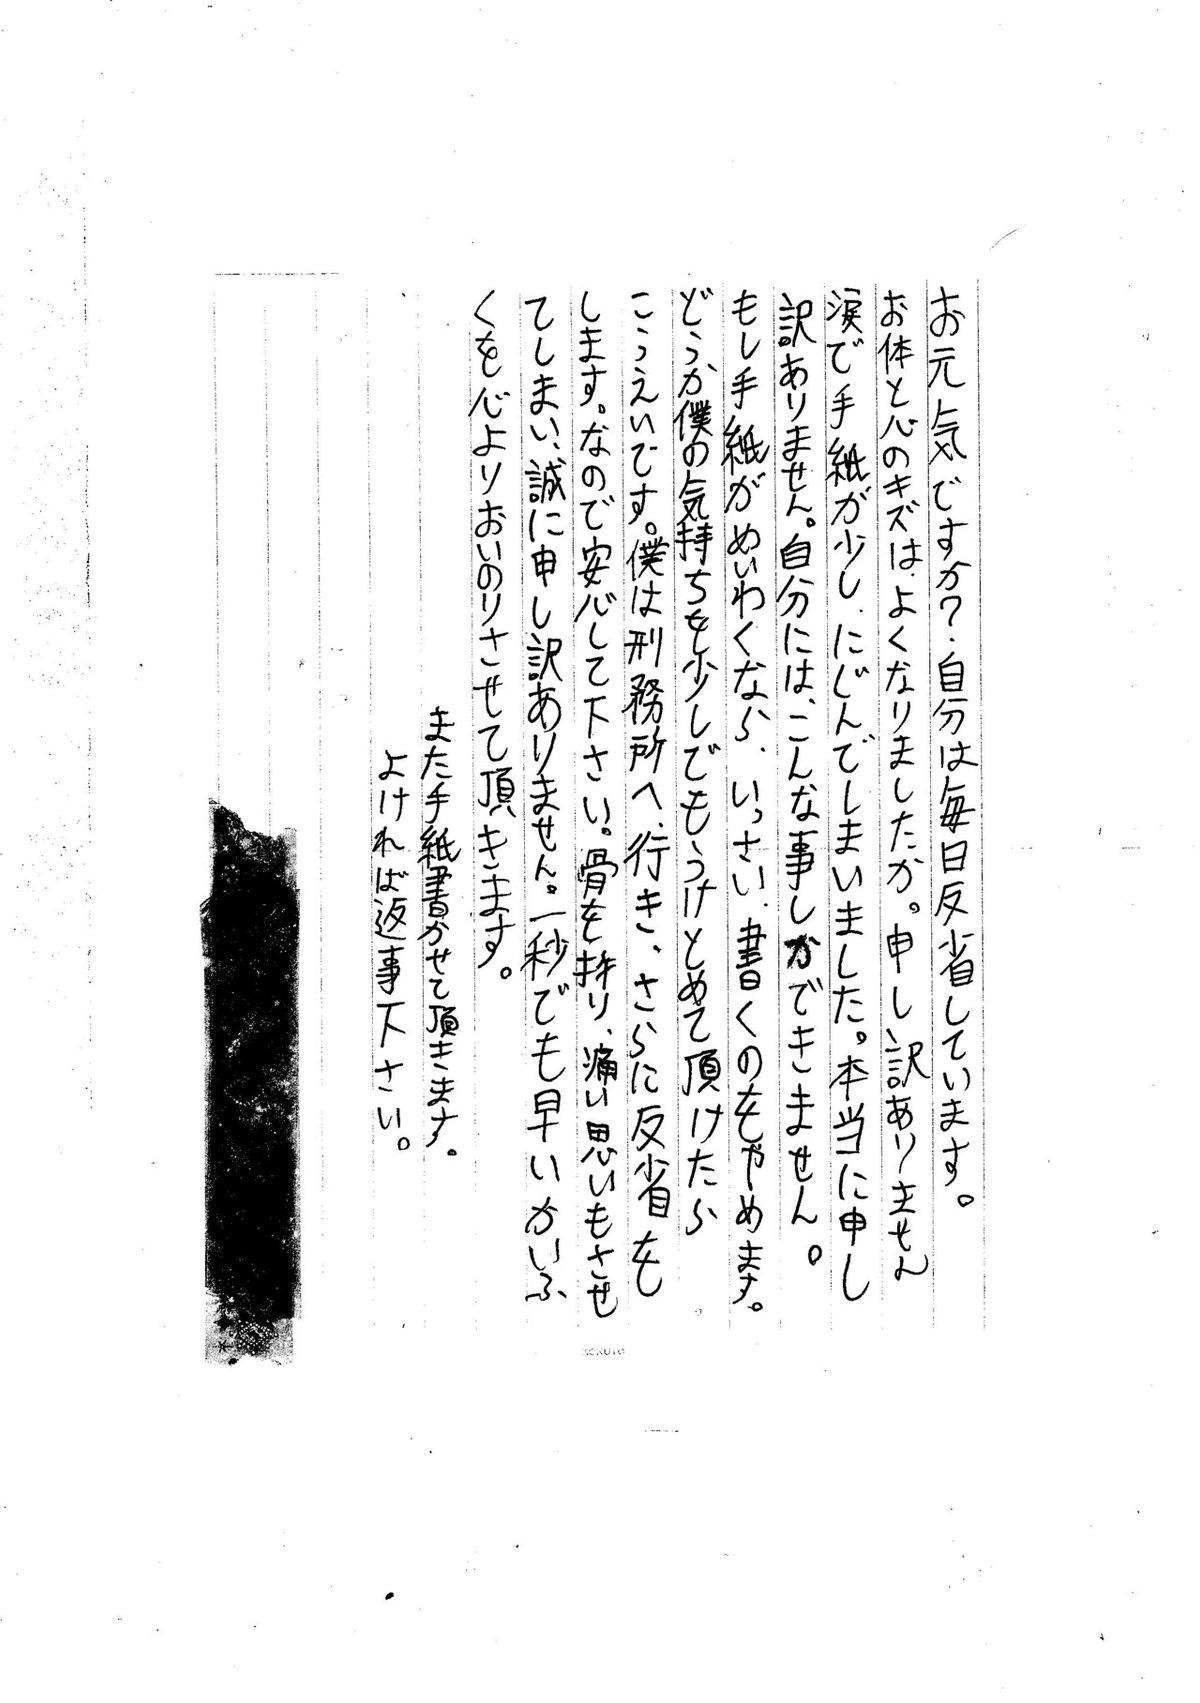 お元気ですか?自分は毎日反省しています。
お体と心のキズは、よくなりましたか。申し訳ありません
涙で手紙が少し、にじんでしまいました。本当に申し
訳ありません。自分には、こんな事しかできません。
もし手紙がめいわくなら、いっさい、書くのをやめます。
どうか僕の気持ちを少しでもうけとめて頂けたら
こうえいです。僕は刑務所へ、行き、さらに反省を
します。なので安心して下さい。骨を折り、痛い思いもさせ
てしまい、誠に申し訳ありません。一秒でも早いかいふ
くを心よりおいのりさせて頂きます。
また手紙書かせて頂きます。
よければ返事下さい。
KOKUYO